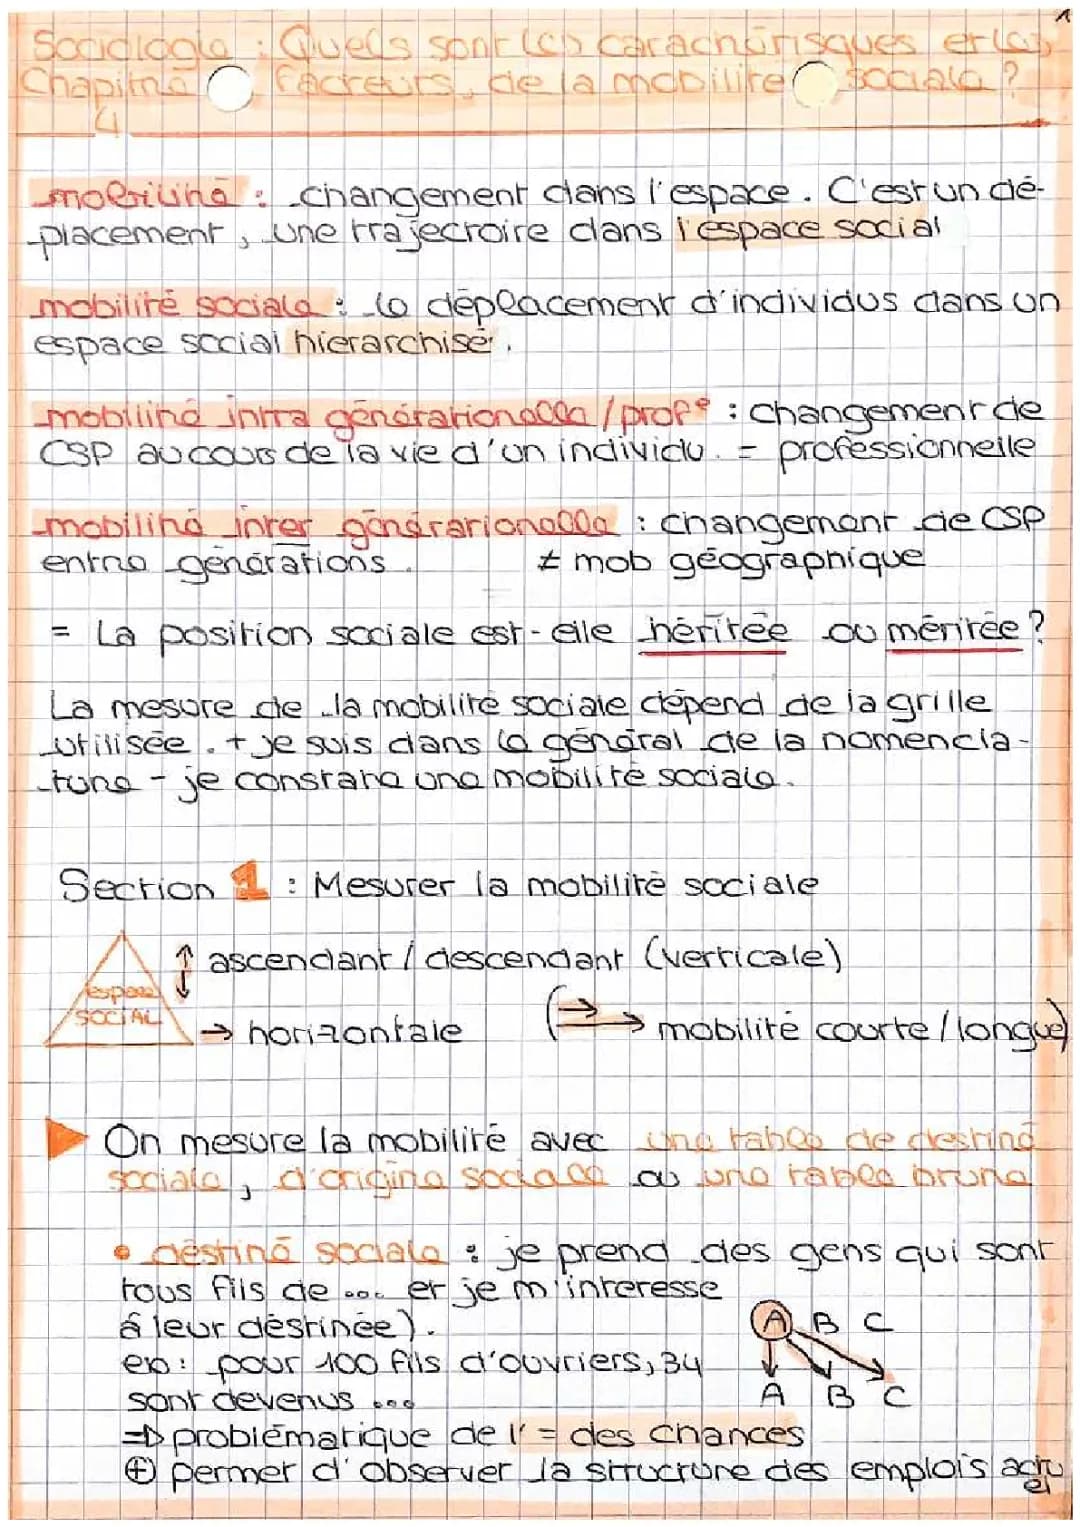 1
Sociologie : Quels sont les caractéristiques et les
Chapitre facteurs de la mobilité sociale ?
4
mobilité : changement dans l'espace. C'est un dé-
placement, une trajectoire dans l'espace social
mobilité sociale : le déplacement d'individus dans un
espace social hierarchisé.
mobilité intra générationelle / profe : changement de
CSP au cours de la vie d'un individu. = professionnelle
mobilité inter générationelle : changement de CSP
entre générations. ≠ mob géographique
= La position sociale est-elle héritée ou méritée ?
La mesure de la mobilité sociale dépend de la grille
utilisée. + je suis dans le général de la nomencla-
ture - je constate une mobilité sociale.
Section 1 : Mesurer la mobilité sociale
↑↓ ascendant / descendant (verticale)
espace
SOCIAL
→ horizontale (→→ mobilité courte / longue)
On mesure la mobilité avec une table de destiné
sociale, d'origine sociale ou une table brute
• destiné sociale : je prend des gens qui sont
tous fils de ... et je m'interesse
à leur déstinée).
A B C
ex : pour 100 fils d'ouvriers, 34
sont devenus ...
A B C
=> problématique de l' = des chances
⊕ permet d'observer la structure des emplois actu
el